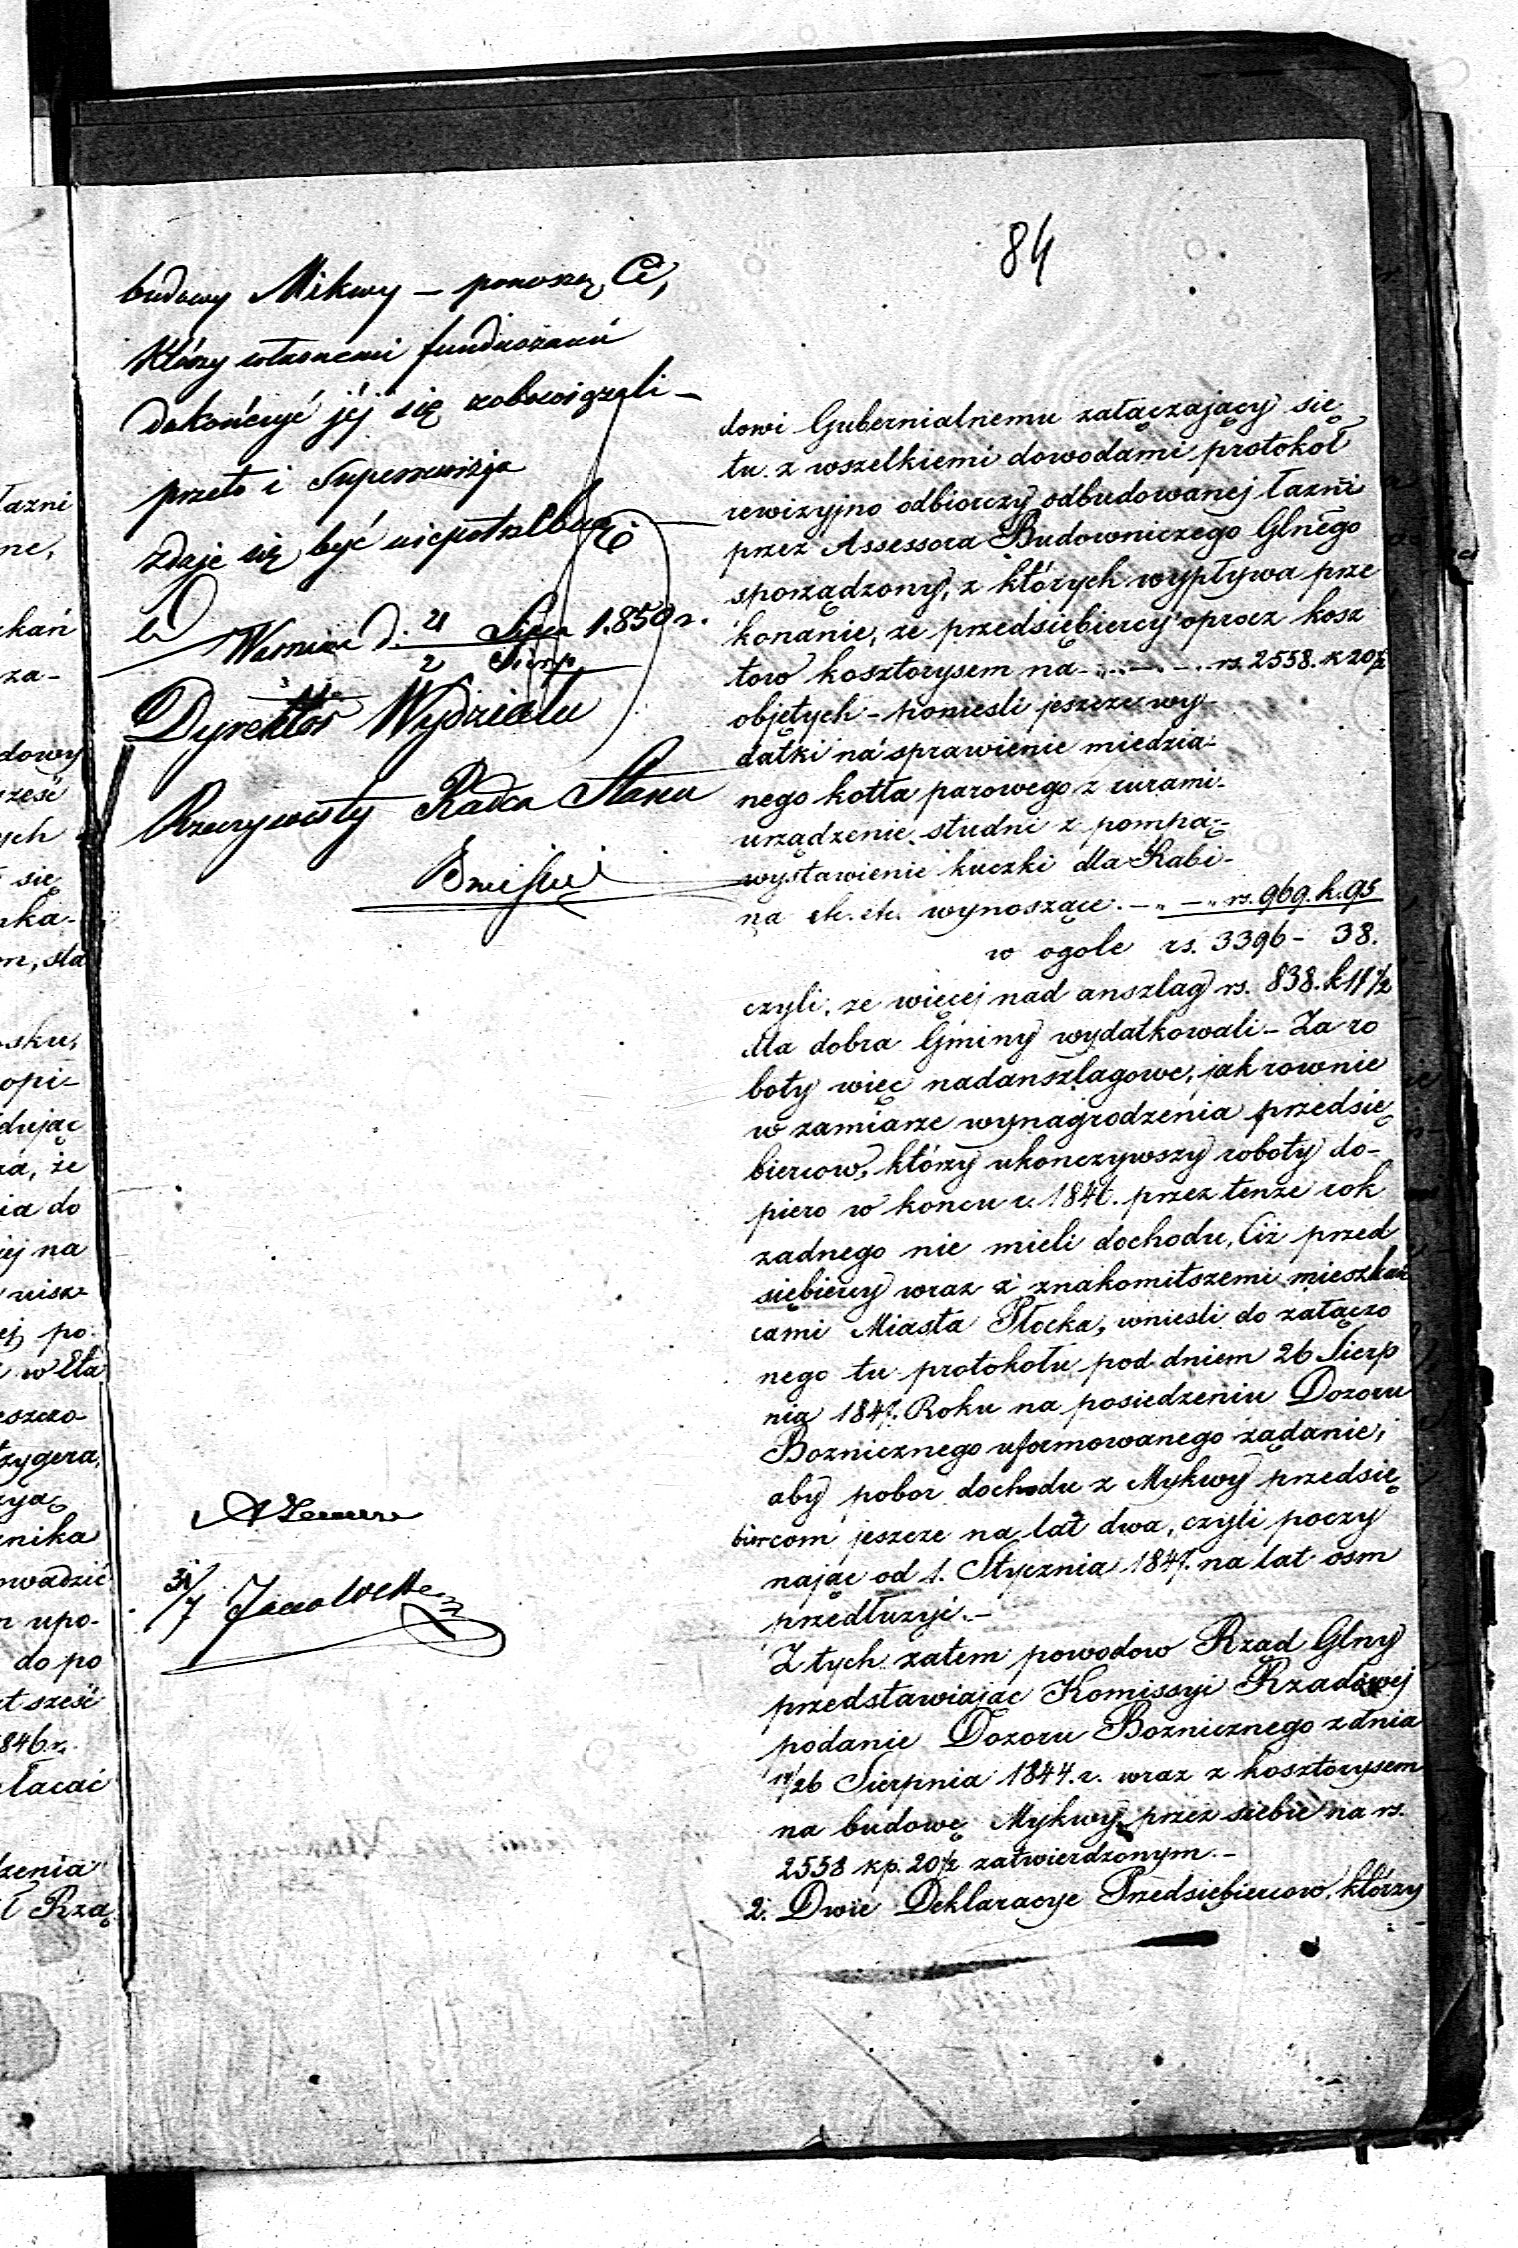 84
budowy Mikwy – ponoszą Ci,
którzy własnemi funduszami
dokończyć jéj się zobowiązali –
przeto i Superrewizja
zdaje się być niepotrzebną
w Warszawie d. 21 Lipca 1.850 r.
2 Sierp
Dyrektor Wydziału
Rzeczywisty Radca Stanu
31/7
dowi Gubernialnemu załączający się
tu z wszelkiemi dowodami protokoł
rewizyjno odbiorczy odbudowanej łazni
przez Assessora Budowniczego Glnego
sporządzony, z których wypływa prze
konanie, ze przedsiębiercy oprocz kosz
tow kosztorysem na - „ . — . — . rs. 2558. k 20½
objętych – poniesli jeszcze wy-
datki na sprawienie miedzia-
nego kotła parowego z rurami.
urządzenie studni z pompą-
wystawienie kuczki dla Rabi-
na etc. etc. wynoszące. — „ — „ rs. 969. k. 95
w ogole rs. 3396 – 38.
czyli, ze więcej nad anszlag rs. 838. k 11½
dla dobra Gminy wydatkowali – Za ro
boty więc nadanszlagowe, jak rownie
w zamiarze wynagrodzenia przedsię
biercow, którzy ukonczywszy roboty do-
piero w koncu r. 1846. przez tenze rok
zadnego nie mieli dochodu, Ciż przed
siębiercy wraz z znakomitszemi mieszkań
cami Miasta Płocka, wniesli do załączo
nego tu protokołu pod dniem 26 Sierp
nia 1847. Roku na posiedzeniu Dozoru
Boznicznego uformowanego ządanie,
aby pobor dochodu z Mykwy przedsię
biercom jeszcze na lat dwa, czyli poczy
nając od 1. Stycznia 1847. na lat osm
przedłuzyć. –
Z tych zatem powodow Rząd Glny
przedstawiając Komissyi Rządowej
podanie Dozoru Boznicznego z dnia
14/26 Sierpnia 1844. r. wraz z kosztorysem
na budowę Mykwy przez siebie na rs.
2558 kp. 20½ zatwierdzonym. –
2. Dwie Deklaracye Przedsiebiercow, którzy